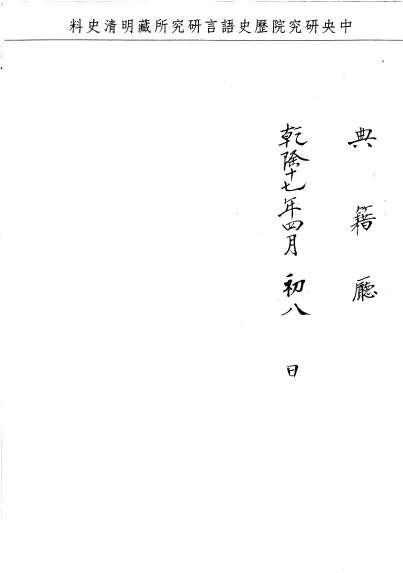 中央研究院歷史語言研究所藏明清史料
典籍廳
乾隆十七年四月初八日